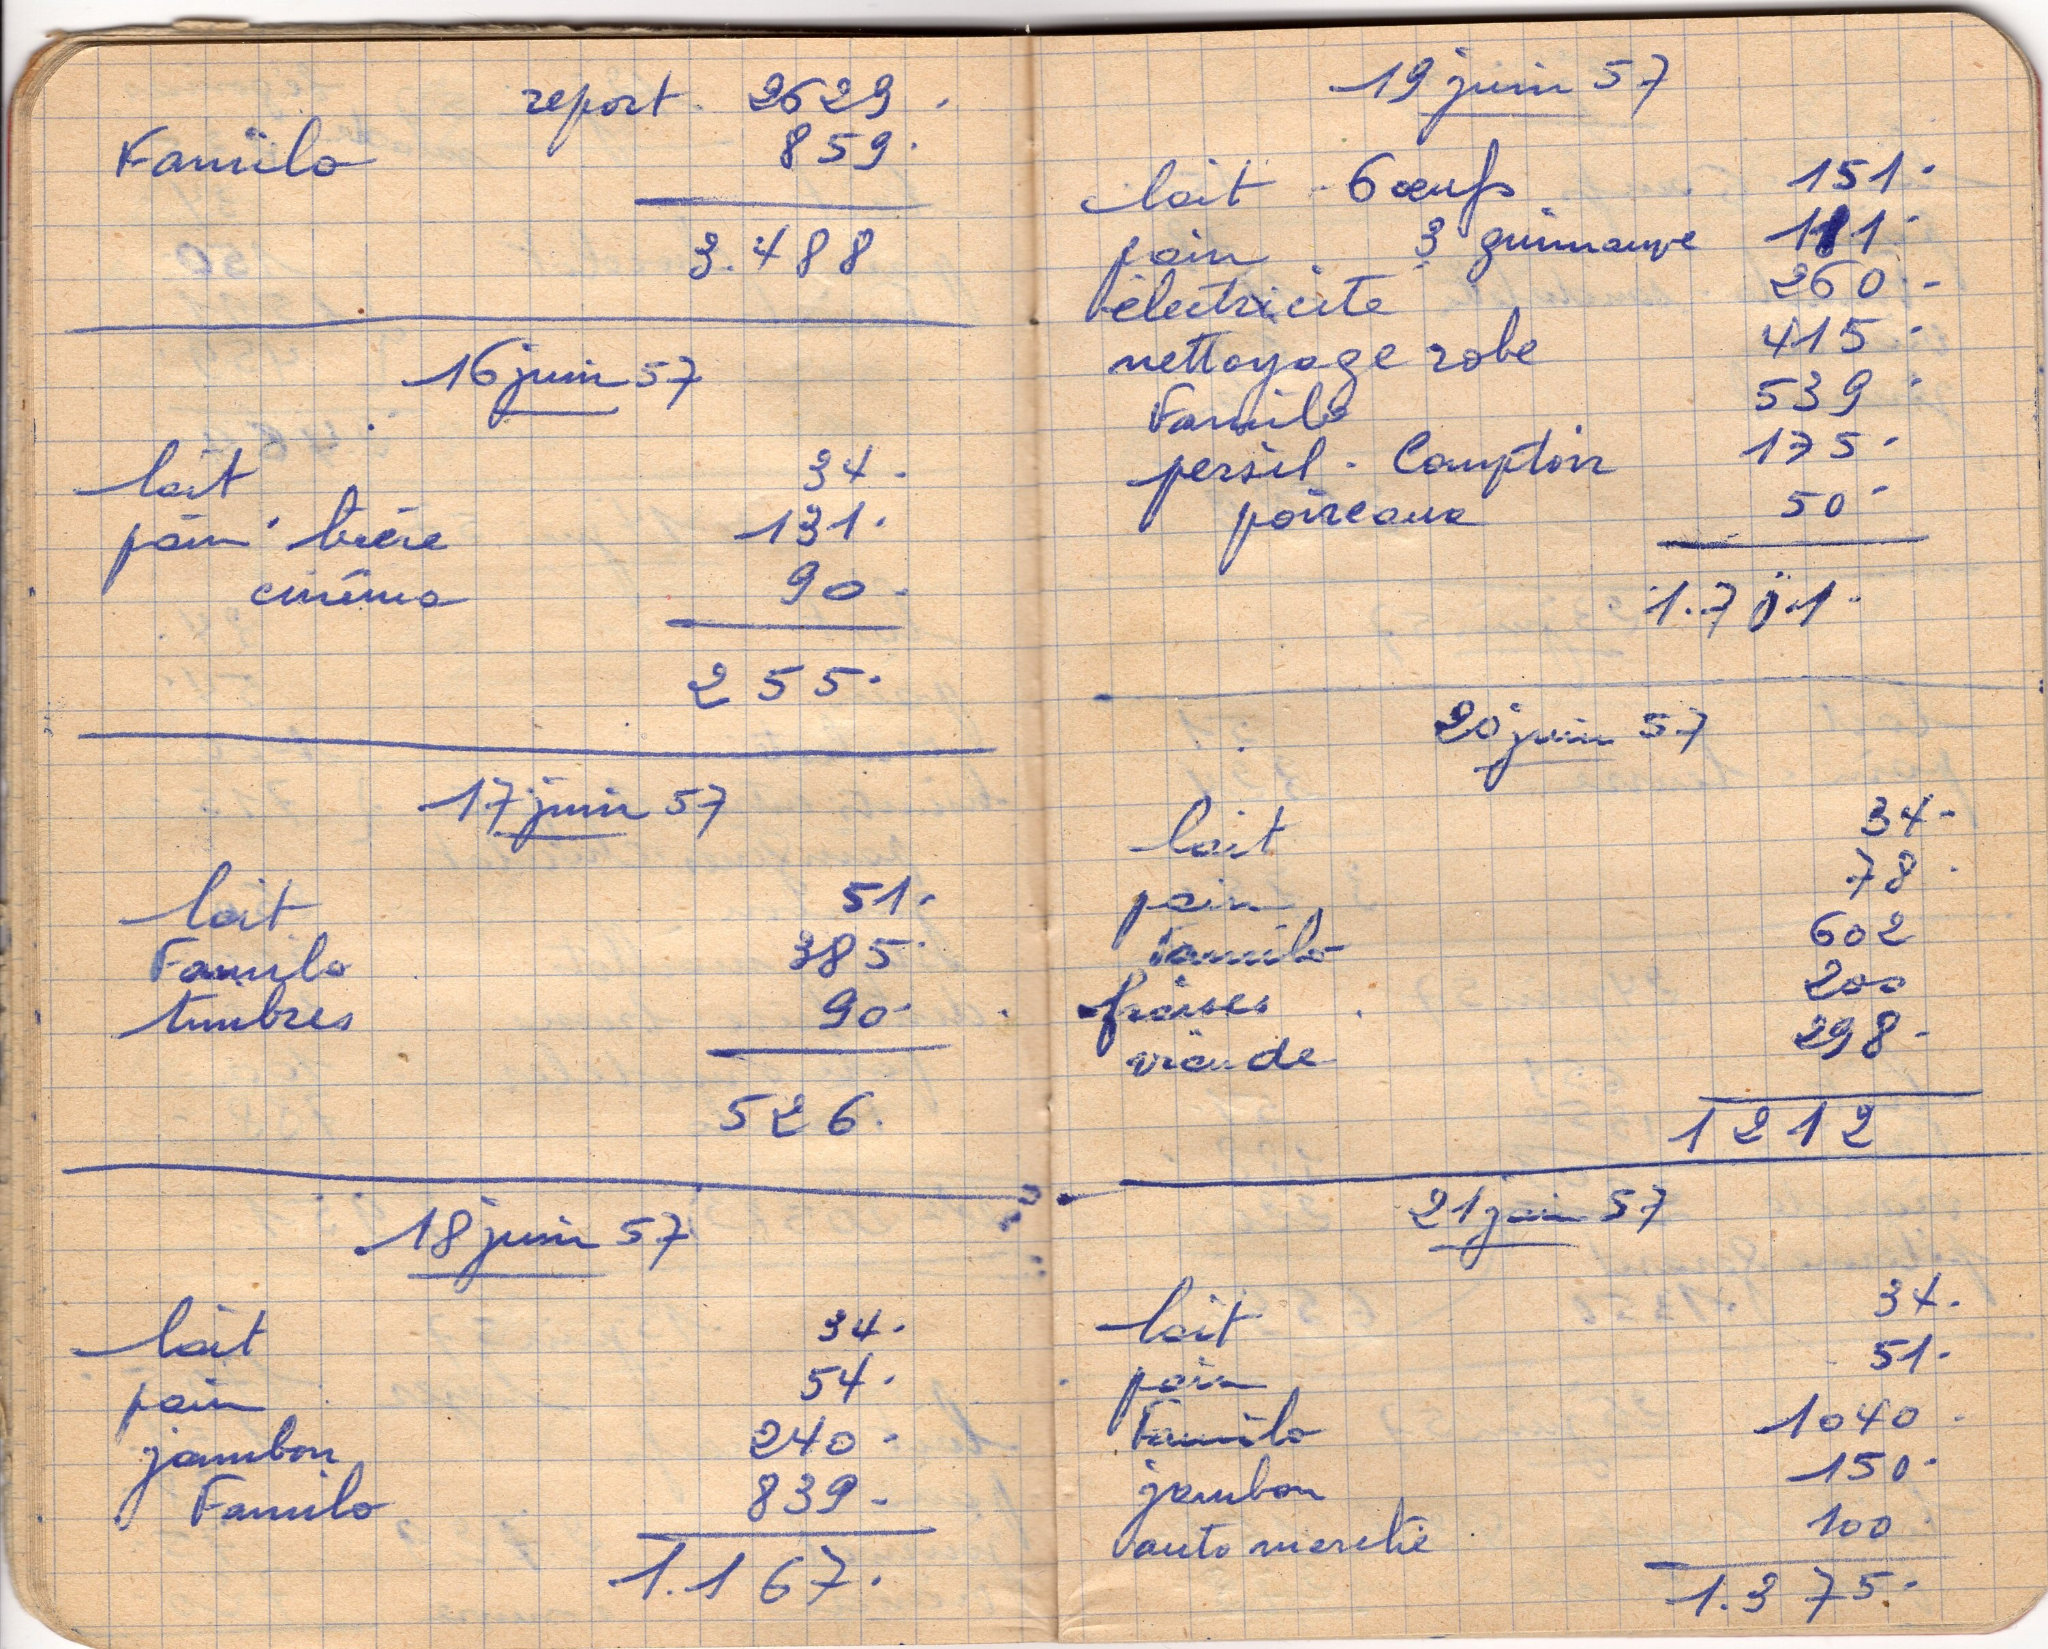 report. 2629.
Familo 859.
3.488
16 juin 57
lait 34.
pain. bière 131.
cinéma 90.
255.
17 juin 57
lait 51.
Familo 385.
timbres 90.
526.
18 juin 57
lait 34.
pain 54.
jambon 240.
Familo 839.
1.167.
19 juin 57
lait - 6 œufs 151.
pain 3 guimauve 111.
électricité 260.
nettoyage robe 415.
Familo 539.
persil. Comptoir 175.
poireaux 50.
1.701.
20 juin 57
lait 34.
pain 78.
Familo 602
fraises 200
viande 298.
1212
21 juin 57
lait 34.
pain 51.
Familo 1040.
jambon 150.
auto marché 100
1.375.